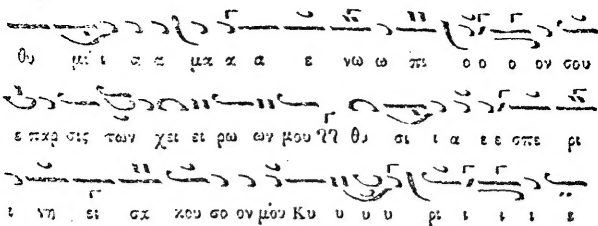 θυ μι ι α α μα α α ε νω ω πι ο ο ο ον σου
ε παρ σις των χει ει ρω ων μου ⁇ θυ σι ι α ε ε σπε ρι
ι νη ει σα κου σο ον μου Κυ υ υ υ ρι ι ι ι ε